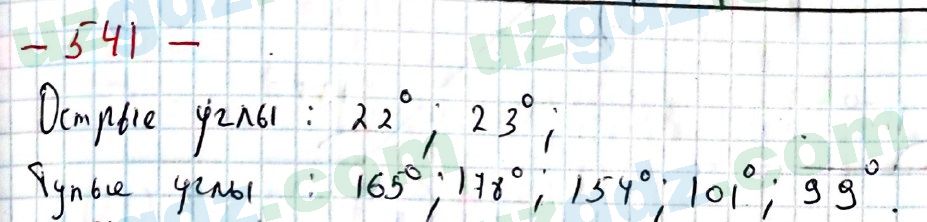 - 541 -
Острые углы : 22°; 23°;
Тупые углы : 165°; 178°; 154°; 101°; 99°.